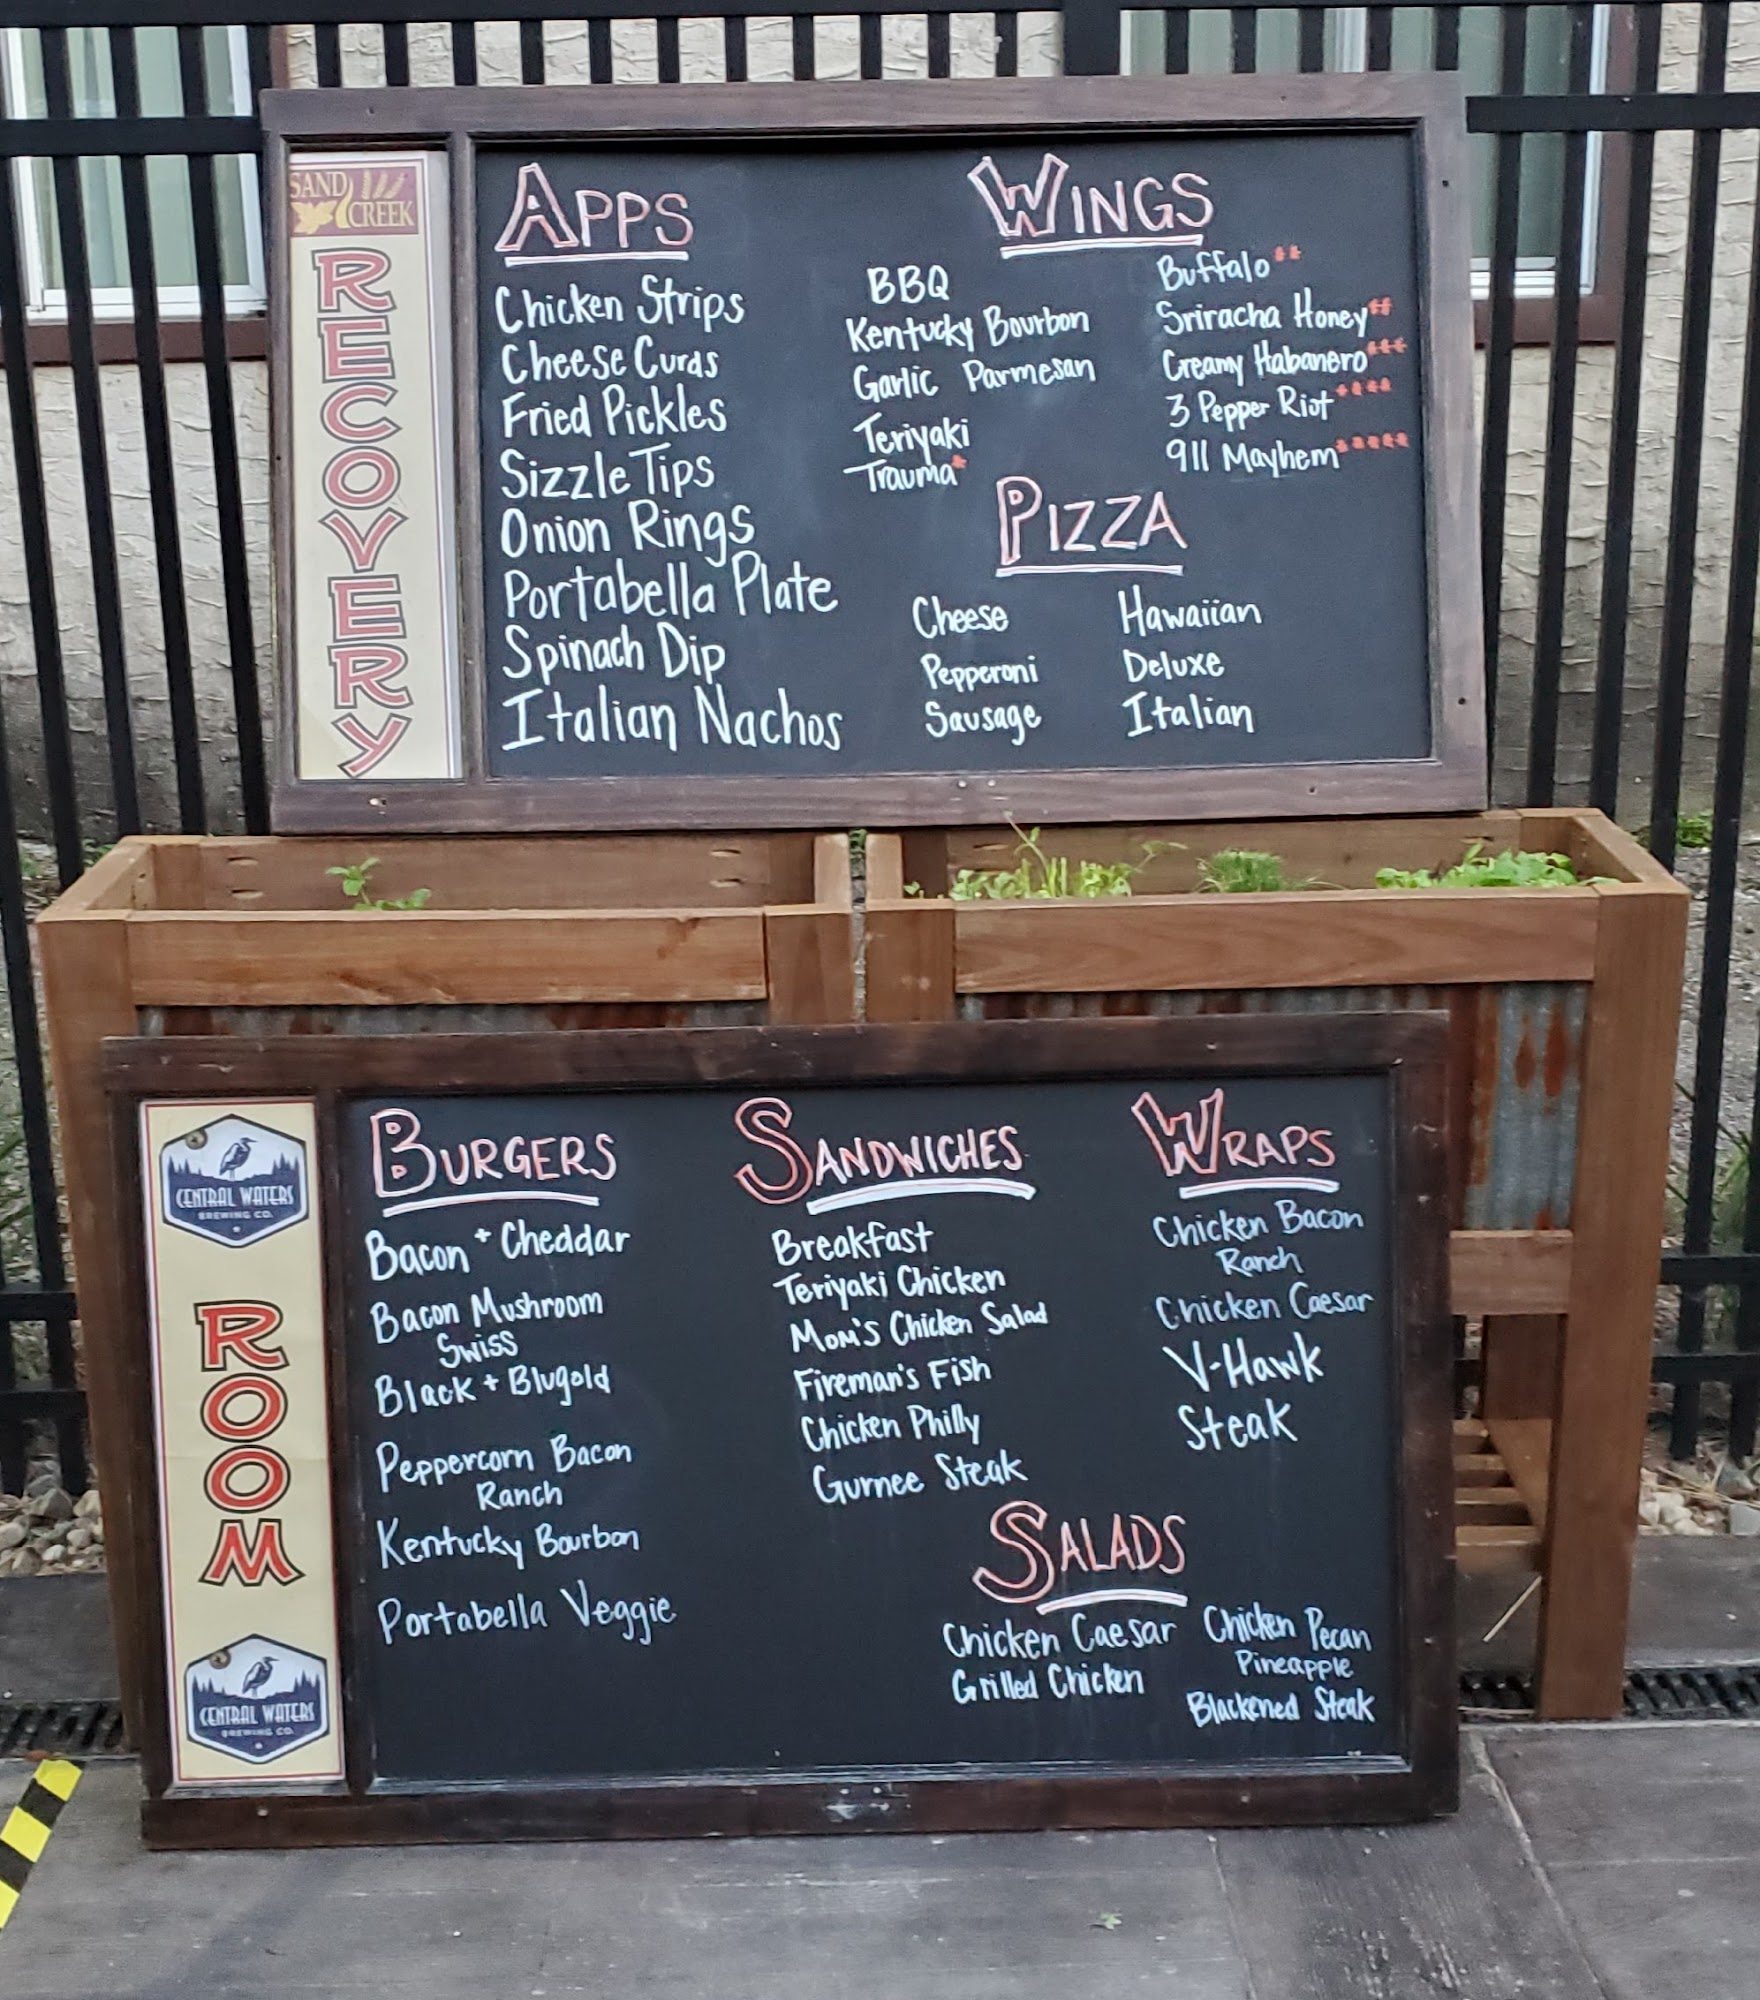 SAND
CREEK
RECOVERY
APPS
Chicken Strips
Cheese Curds
Fried Pickles
Sizzle Tips
Onion Rings
Portabella Plate
Spinach Dip
Italian Nachos
WINGS
BBQ
Kentucky Bourbon
Garlic Parmesan
Teriyaki
Trauma*
Buffalo**
Sriracha Honey**
Creamy Habanero***
3 Pepper Riot****
911 Mayhem*****
PIZZA
Cheese
Pepperoni
Sausage
Hawaiian
Deluxe
Italian
CENTRAL WATERS
BREWING CO.
ROOM
CENTRAL WATERS
BREWING CO.
BURGERS
Bacon + Cheddar
Bacon Mushroom
Swiss
Black + Blugold
Peppercorn Bacon
Ranch
Kentucky Bourbon
Portabella Veggie
SANDWICHES
Breakfast
Teriyaki Chicken
Mom's Chicken Salad
Fireman's Fish
Chicken Philly
Gurnee Steak
WRAPS
Chicken Bacon
Ranch
Chicken Caesar
V-Hawk
Steak
SALADS
Chicken Caesar
Grilled Chicken
Chicken Pecan
Pineapple
Blackened Steak